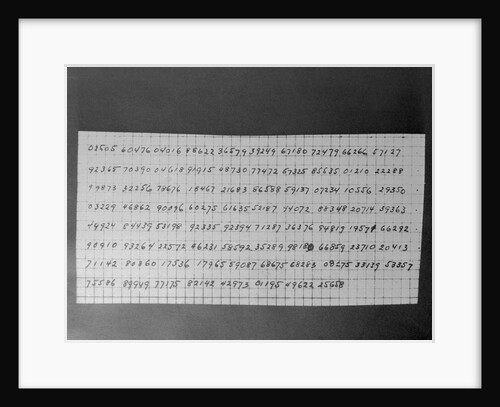 03505 60476 04016 88622 36579 39249 67180 72479 66266 57127
92365 70390 04618 91915 48730 77472 85635 01210 22288
99873 32256 78676 18467 21683 86588 59137 07234 10556 29350
03229 46862 90096 60275 61635 52187 94072 98348 20714 39363
49924 53198 92335 92394 71287 36376 94819 66292
90910 93264 22572 46281 58592 35289 66859 33710 20413
71142 80360 17536 17965 59087 68675 68283 08675 33129 53357
75586 89949 77175 82142 42973 01195 49622 25658